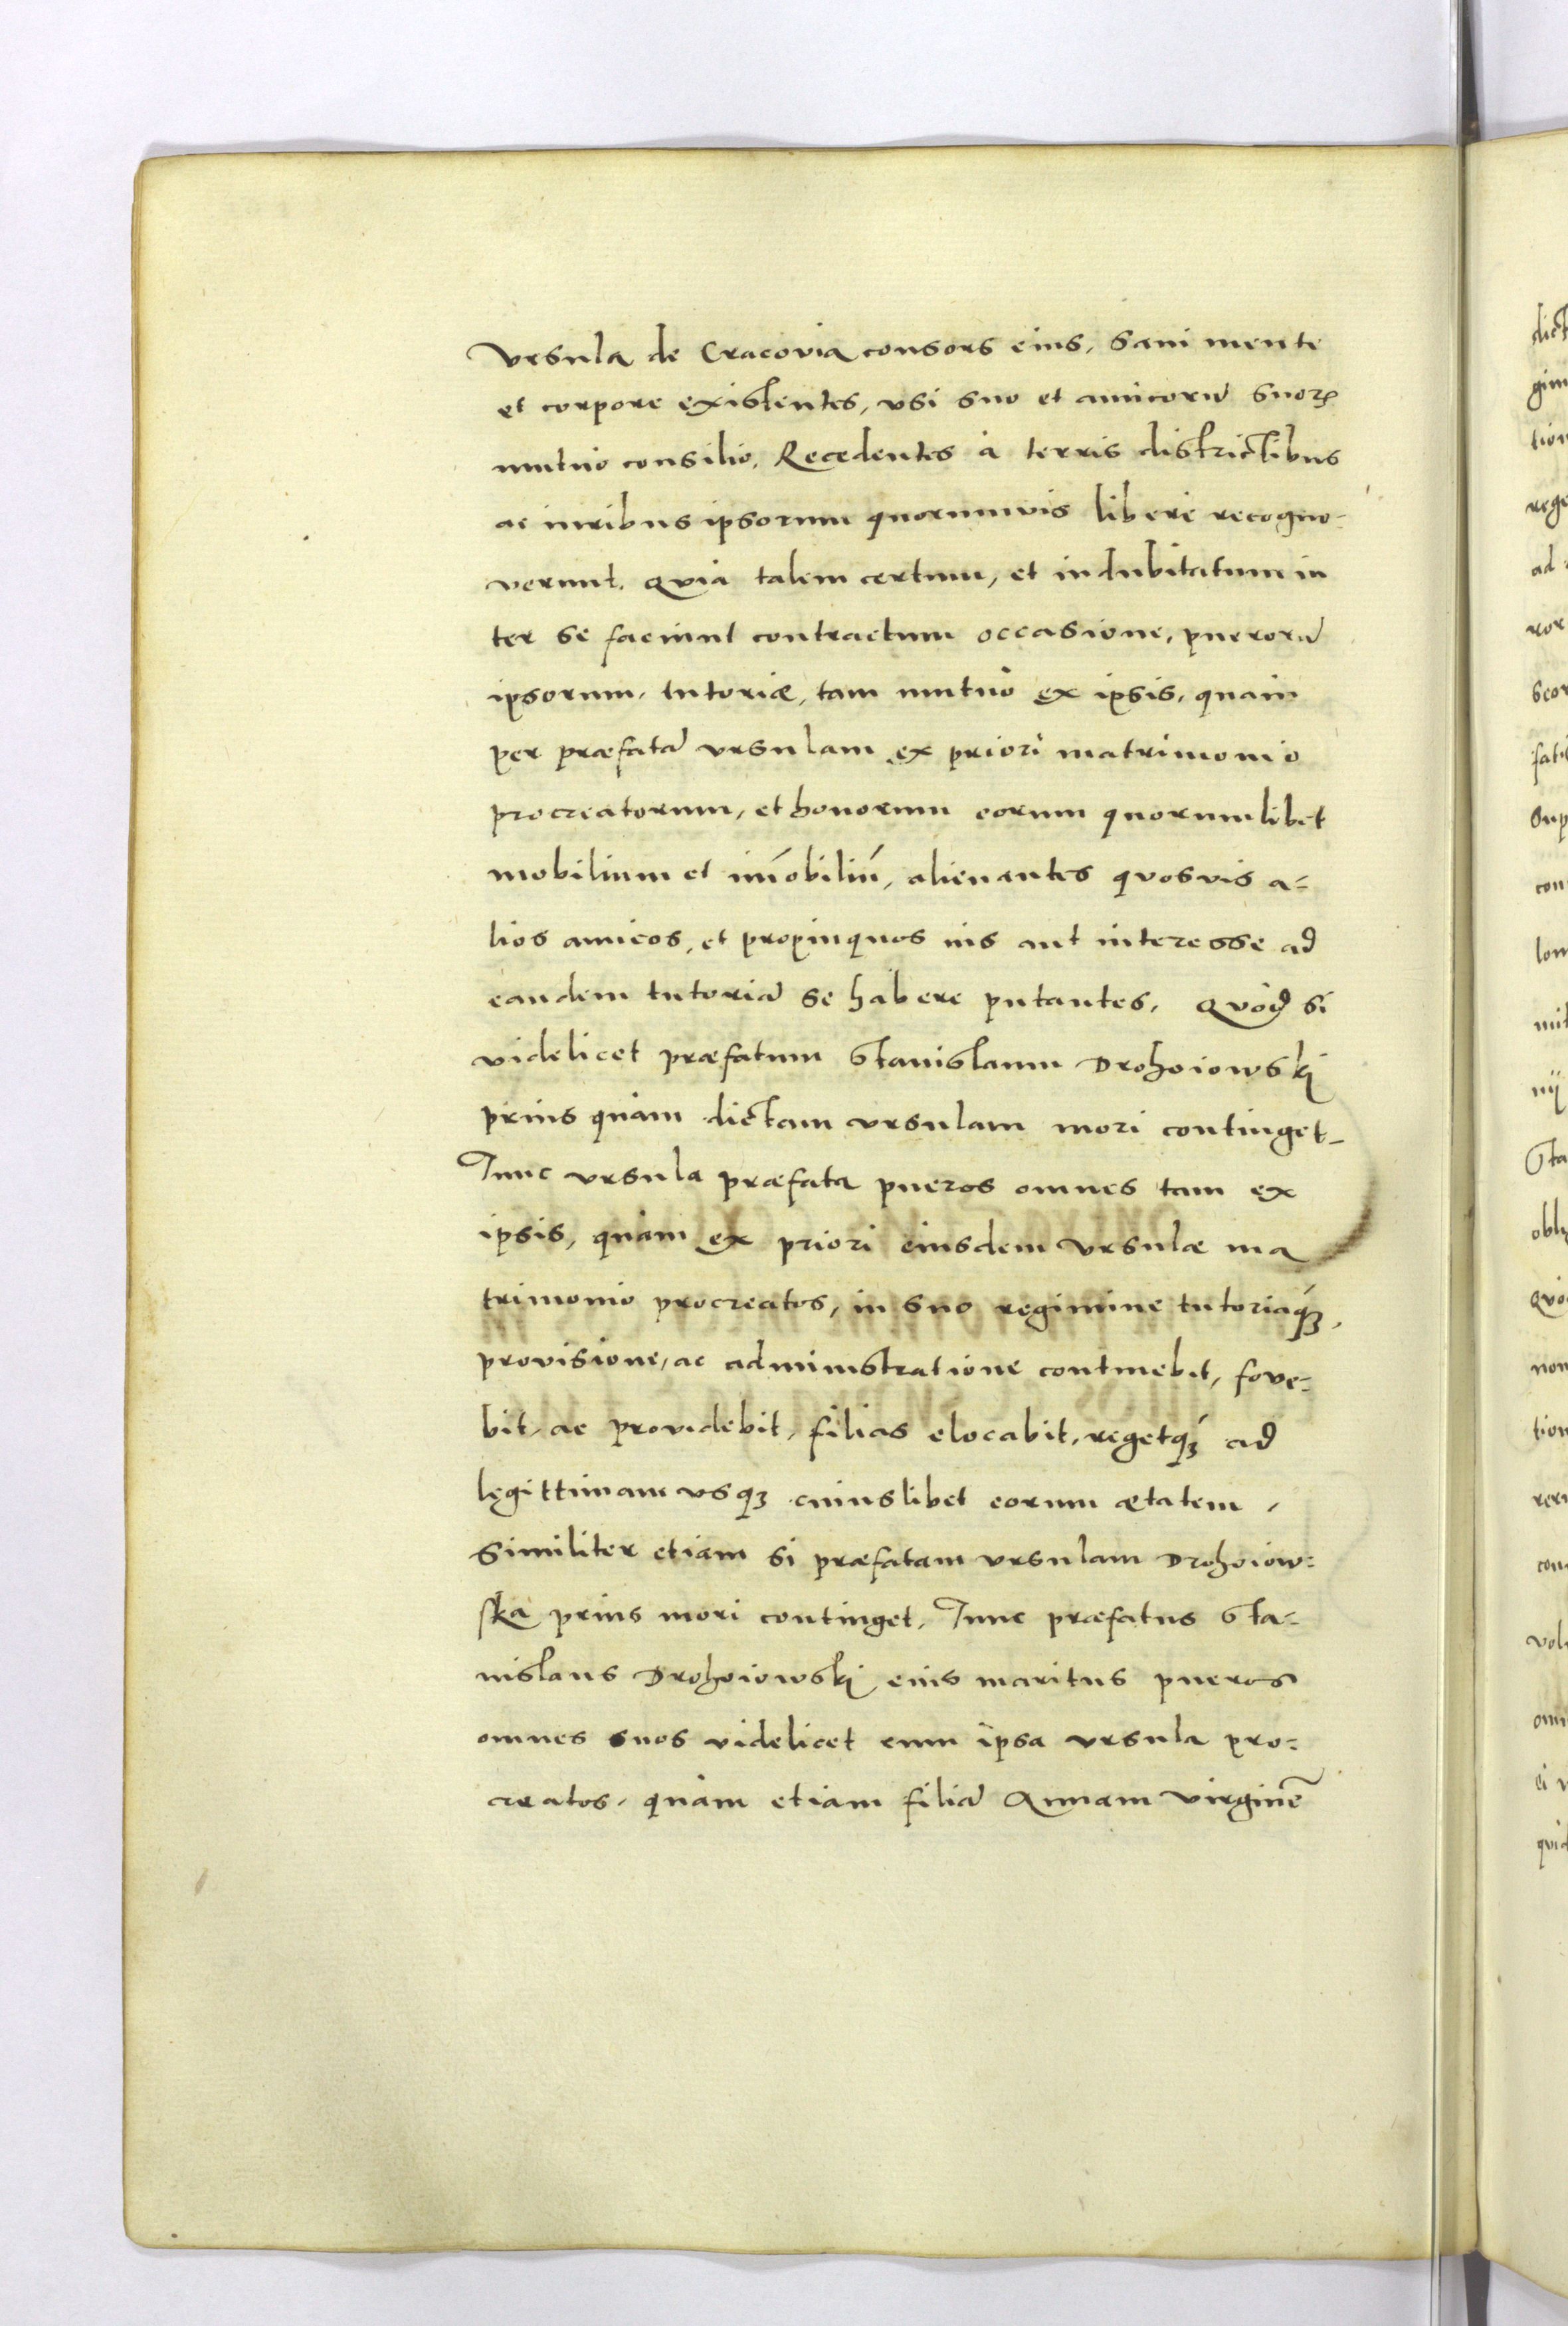 Vrsula de Cracovia consors eius, Sani mente
et corpore existentes, vsi suo et amicorũ suoꝝ
mutuo consilio. Recedentes à terris districtibus
ac iuribus ipsorum quorumvis liberè recogno-
verunt. Qvia talem certum, et indubitatum in
ter se faciunt contractum occasione, puerorũ
ipsorum, tutoriæ, tam mutuò ex ipsis, quàm
per præfatã vrsulam ex priori matrimonio
procreatorum, et bonorum eorum quorumlibet
mobilium et im̃obiliũ, alienantes quosvis a-
lios amicos, et propinquos ius aut interesse ad
eandem tutoriã se habere putantes. Quòd si
videlicet præfatum Stanislaum Drohoiowski
prius quàm dictam vrsulam mori continget
Tunc vrsula præfata pueros omnes tam ex
ipsis, quàm ex priori eiusdem vrsulæ ma
trimonio procreatos, in suo regimine tutoriáqꝫ,
provisione, ac administratione continebit, fove-
bit, ac providebit, filias elocabit, regetqꝫ́ ad
legittimam vsqꝫ cuiuslibet eorum ætatem,
Similiter etiam si præfatam vrsulam Drohoiow-
ska prius mori continget, Tunc præfatus Sta-
nislaus Drohoiowski eius maritus pueros
omnes suos videlicet cum ipsa vrsula pro-
creatos, quàm etiam filiã Annam virginẽ
dict
gim
tion
rege
ad
ror
scor
fati
Sup
con
lom
mit
nij
Sta
obli
Qvo
non
tion
reri
con
vol
omn
ei
quid